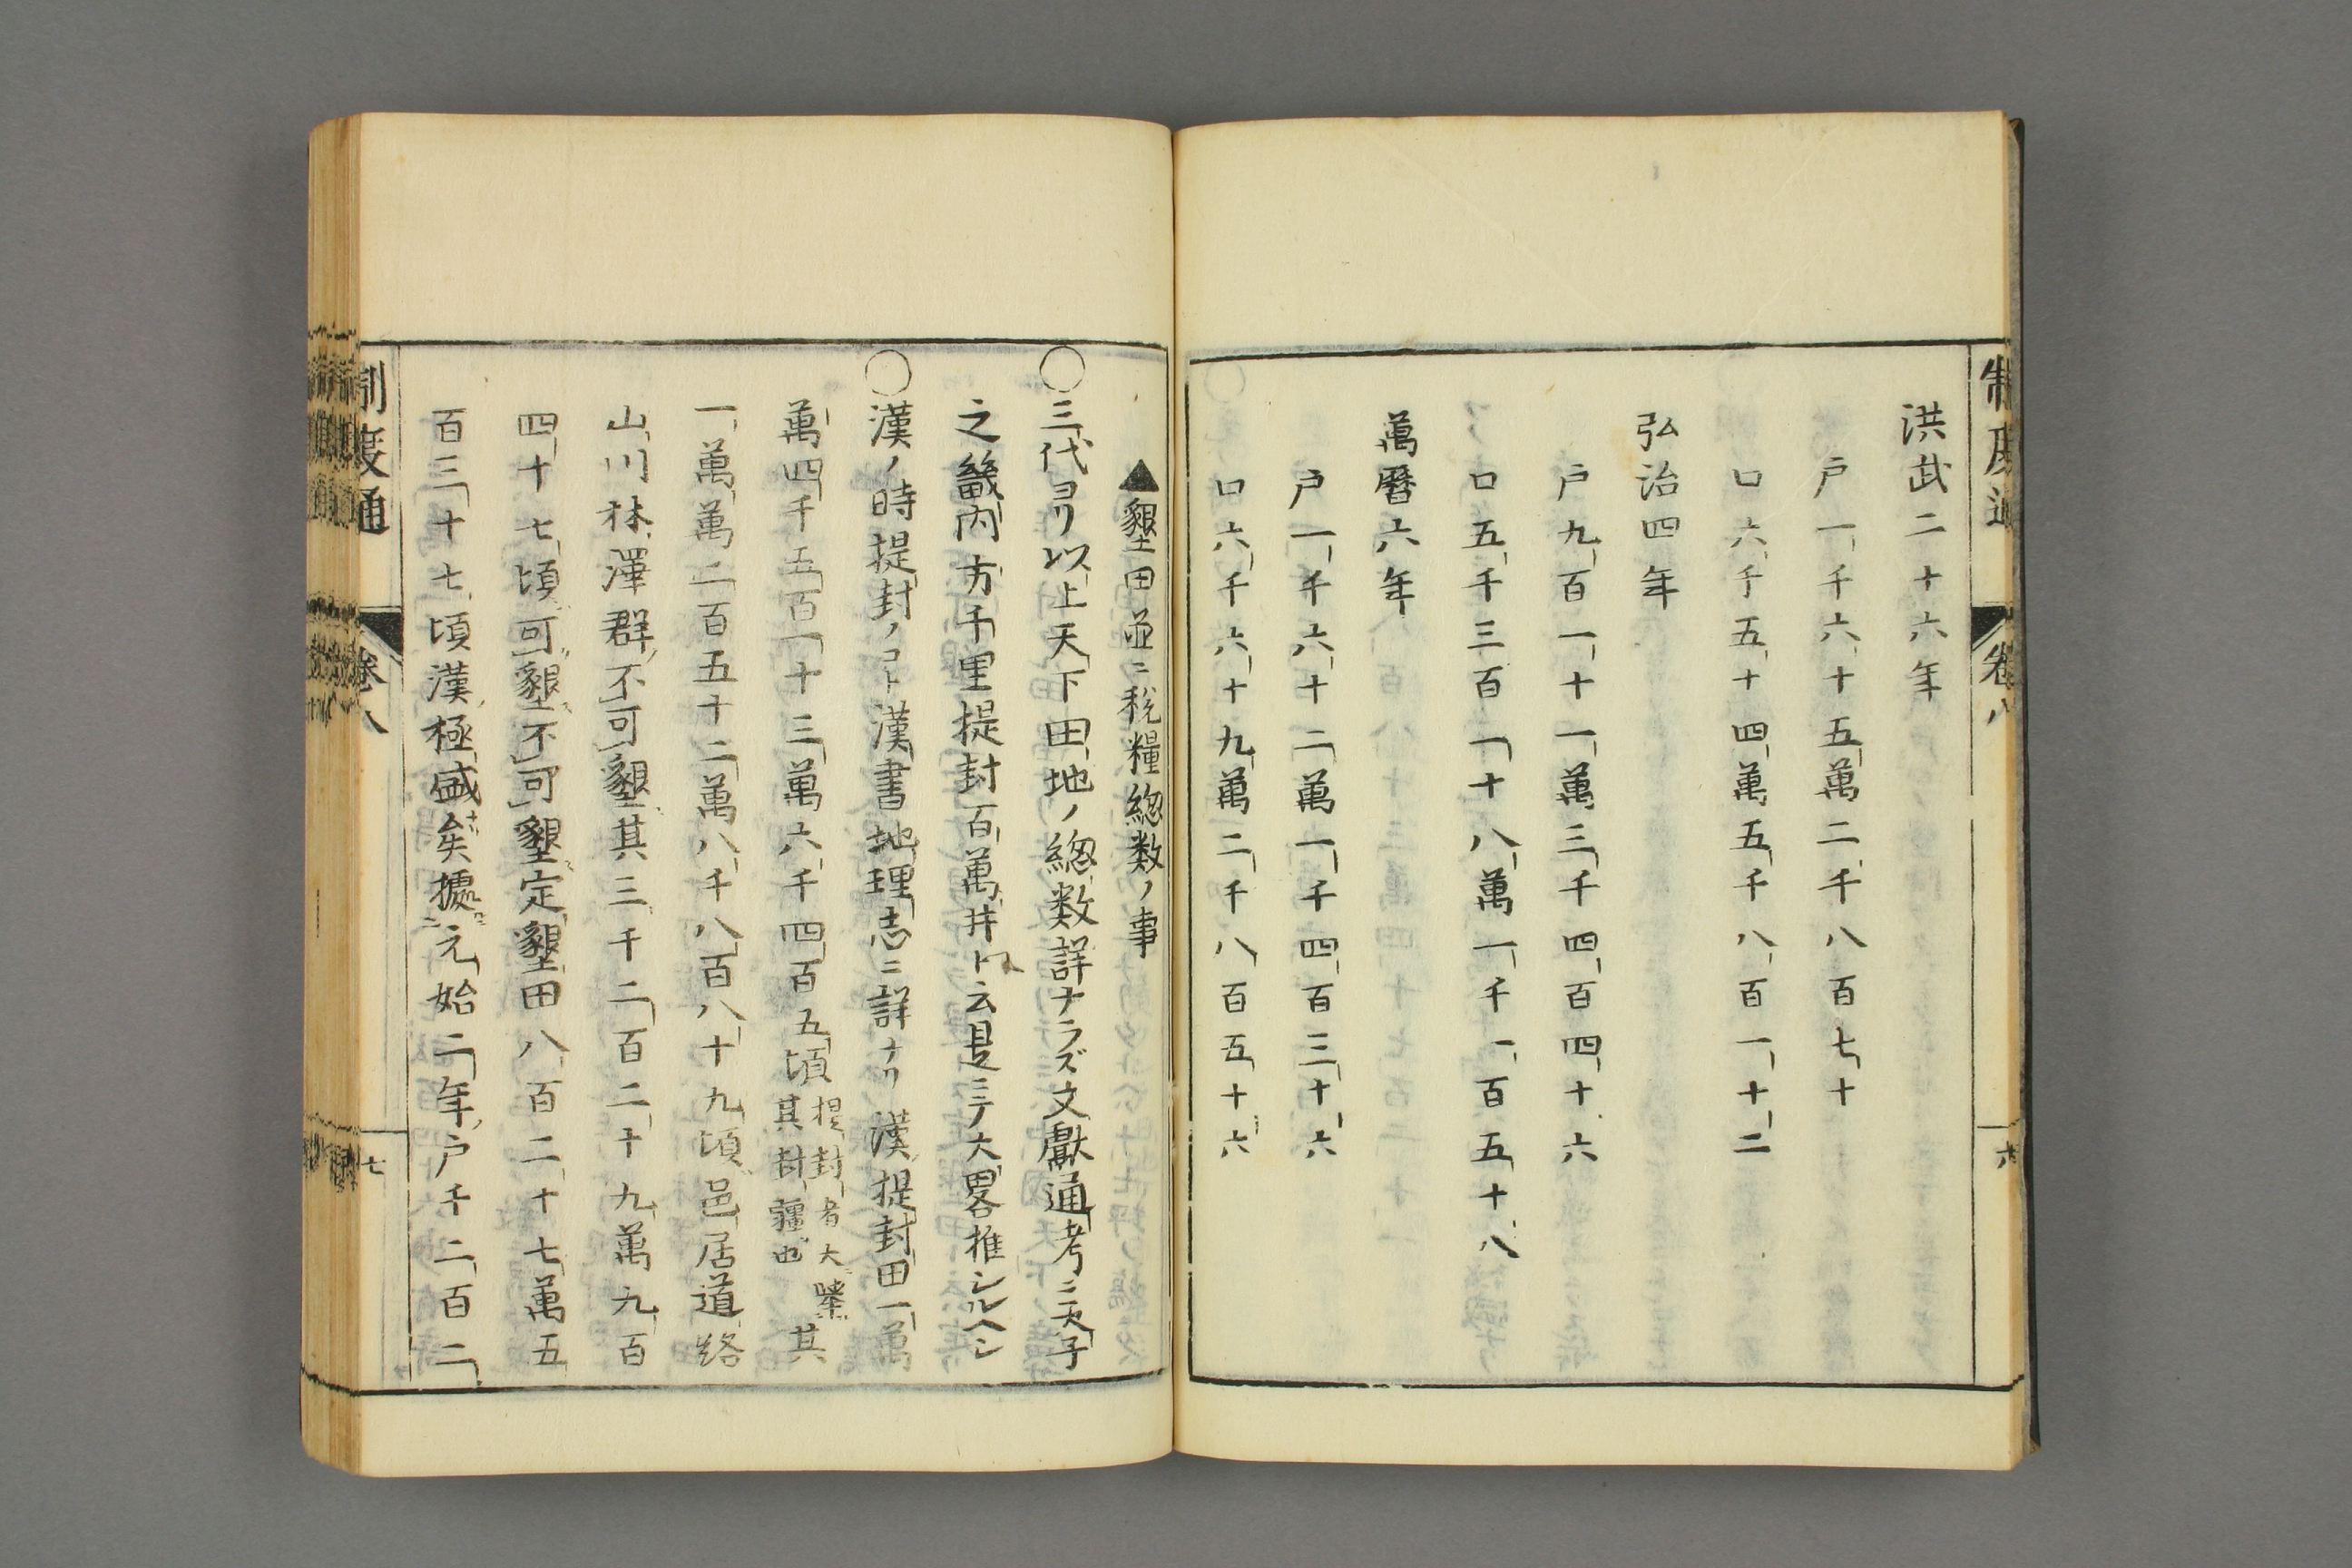 洪武二十六年
戸一千六十五萬二千八百七十
口六千五十四萬五千八百一十二
弘治四年
戸九百一十一萬三千四百四十六
口五千三百二十八萬一千一百五十八
萬曆六年
戸一千六十二萬一千四百三十六
口六千六十九萬二千八百五十六
▲墾田並ニ税糧緫数ノ事
〇三代ヨリ以上天下田地ノ緫数詳ナラズ文獻通考ニ天子
之畿内方千里提封百萬井ト云是ニテ大畧推シルヘシ
〇漢ノ時提封ノコト漢書地理志ニ詳ナリ漢提封田一萬
萬四千五百一十三萬六千四百五頃提封者大㮣其封疆也其
一萬萬二百五十二萬八千八百八十九頃邑居道路
山川林澤群不可墾其三千二百二十九萬九百
四十七頃可墾不可墾定墾田八百二十七萬五
百三十七頃漢極盛矣據元始二年戸千二百二
制度通
卷八
六
制度通
卷八
七